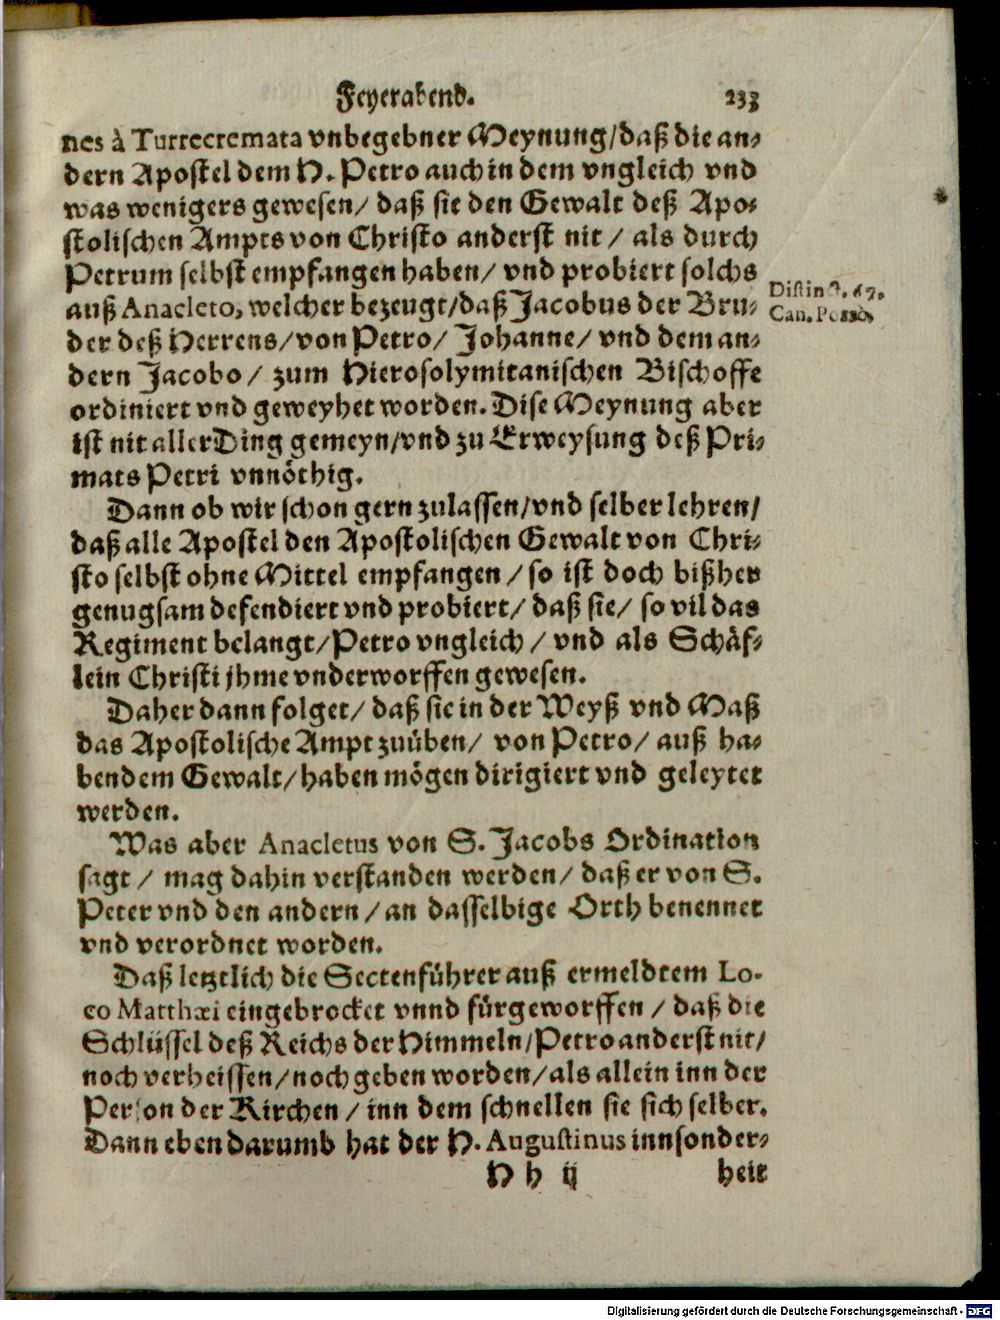 Feyerabend. 233
nes à Turrecremata vnbegebner Meynung/daß die an-
dern Apostel dem H. Petro auch in dem vngleich vnd
was wenigers gewesen/ daß sie den Gewalt deß Apo-
stolischen Ampts von Christo anderst nit / als durch
Petrum selbst empfangen haben/ vnd probiert solchs
auß Anacleto, welcher bezeugt/daß Jacobus der Bru-
der deß Herrens/von Petro/ Johanne/ vnd dem an-
dern Jacobo/ zum Hierosolymitanischen Bischoffe
ordiniert vnd geweyhet worden. Dise Meynung aber
ist nit aller Ding gemeyn/vnd zu Erweysung deß Pri-
mats Petri vnnöthig.
Dann ob wir schon gern zulassen/vnd selber lehren/
daß alle Apostel den Apostolischen Gewalt von Chri-
sto selbst ohne Mittel empfangen / so ist doch bißher
genugsam defendiert vnd probiert/ daß sie/ so vil das
Regiment belangt/Petro vngleich / vnd als Schäf-
lein Christi jhme vnderworffen gewesen.
Daher dann folget/ daß sie in der Weyß vnd Maß
das Apostolische Ampt zuüben/ von Petro/ auß ha-
bendem Gewalt/haben mögen dirigiert vnd geleytet
werden.
Was aber Anacletus von S. Jacobs Ordination
sagt / mag dahin verstanden werden/ daß er von S.
Peter vnd den andern / an dasselbige Orth benennet
vnd verordnet worden.
Daß letztlich die Sectenführer auß ermeldtem Lo-
co Matthæi eingebrocket vnnd fürgeworffen / daß die
Schlüssel deß Reichs der Himmeln/Petro anderst nit/
noch verheissen/noch geben worden/als allein inn der
Person der Kirchen / inn dem schnellen sie sich selber.
Dann eben darumb hat der H. Augustinus innsonder-
H h ij heit
Distinct. 67.
Can. Porro,
Digitalisierung gefördert durch die Deutsche Forschungsgemeinschaft - DFG